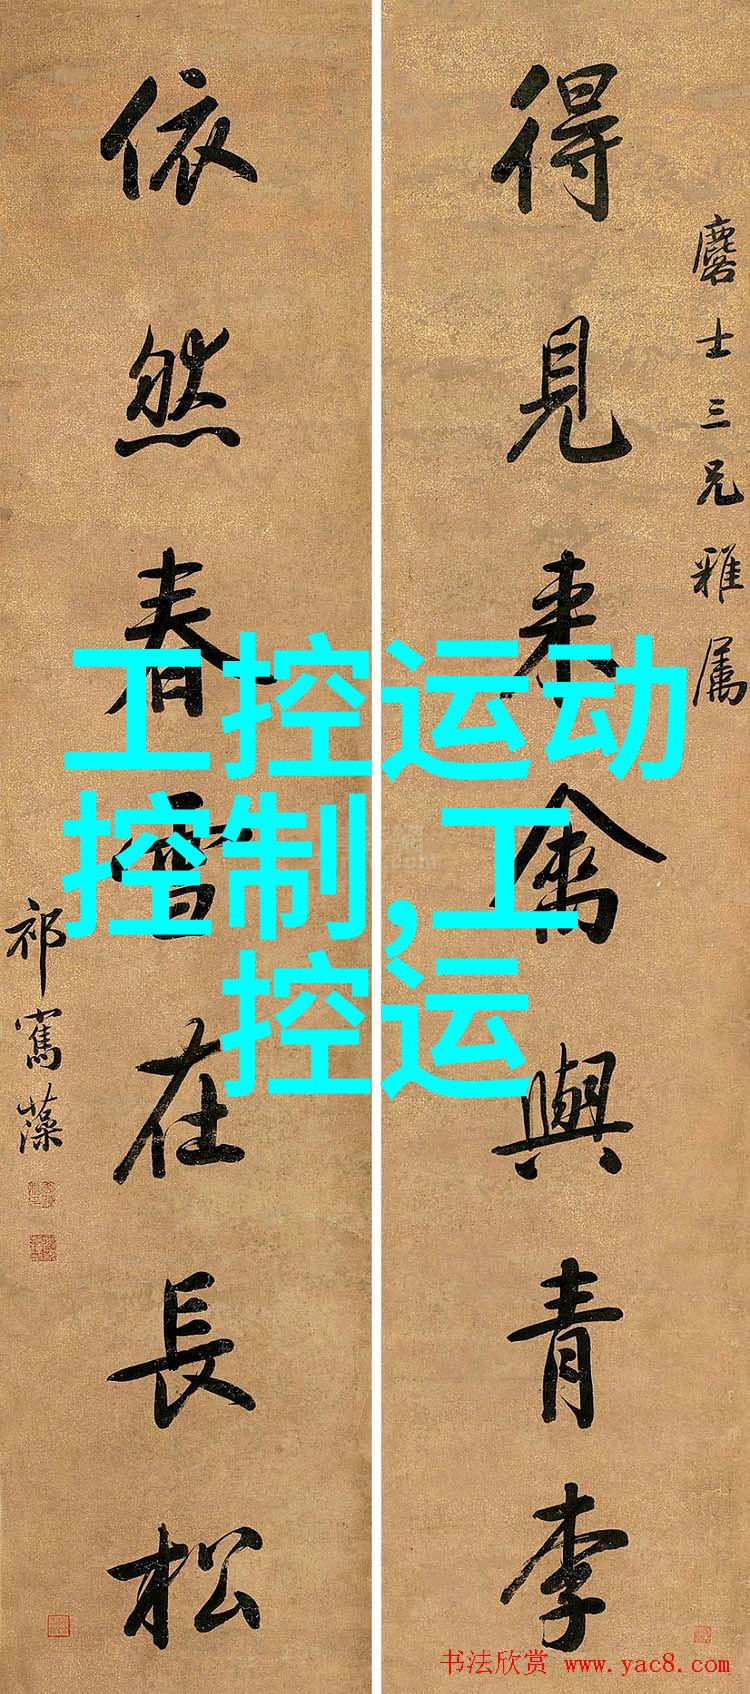 麐士三兄雅属
得見来禽與青李
依然春雪在長松
祁寯藻
工控运动
控制,工
控运
书法欣赏 www.yac8.com